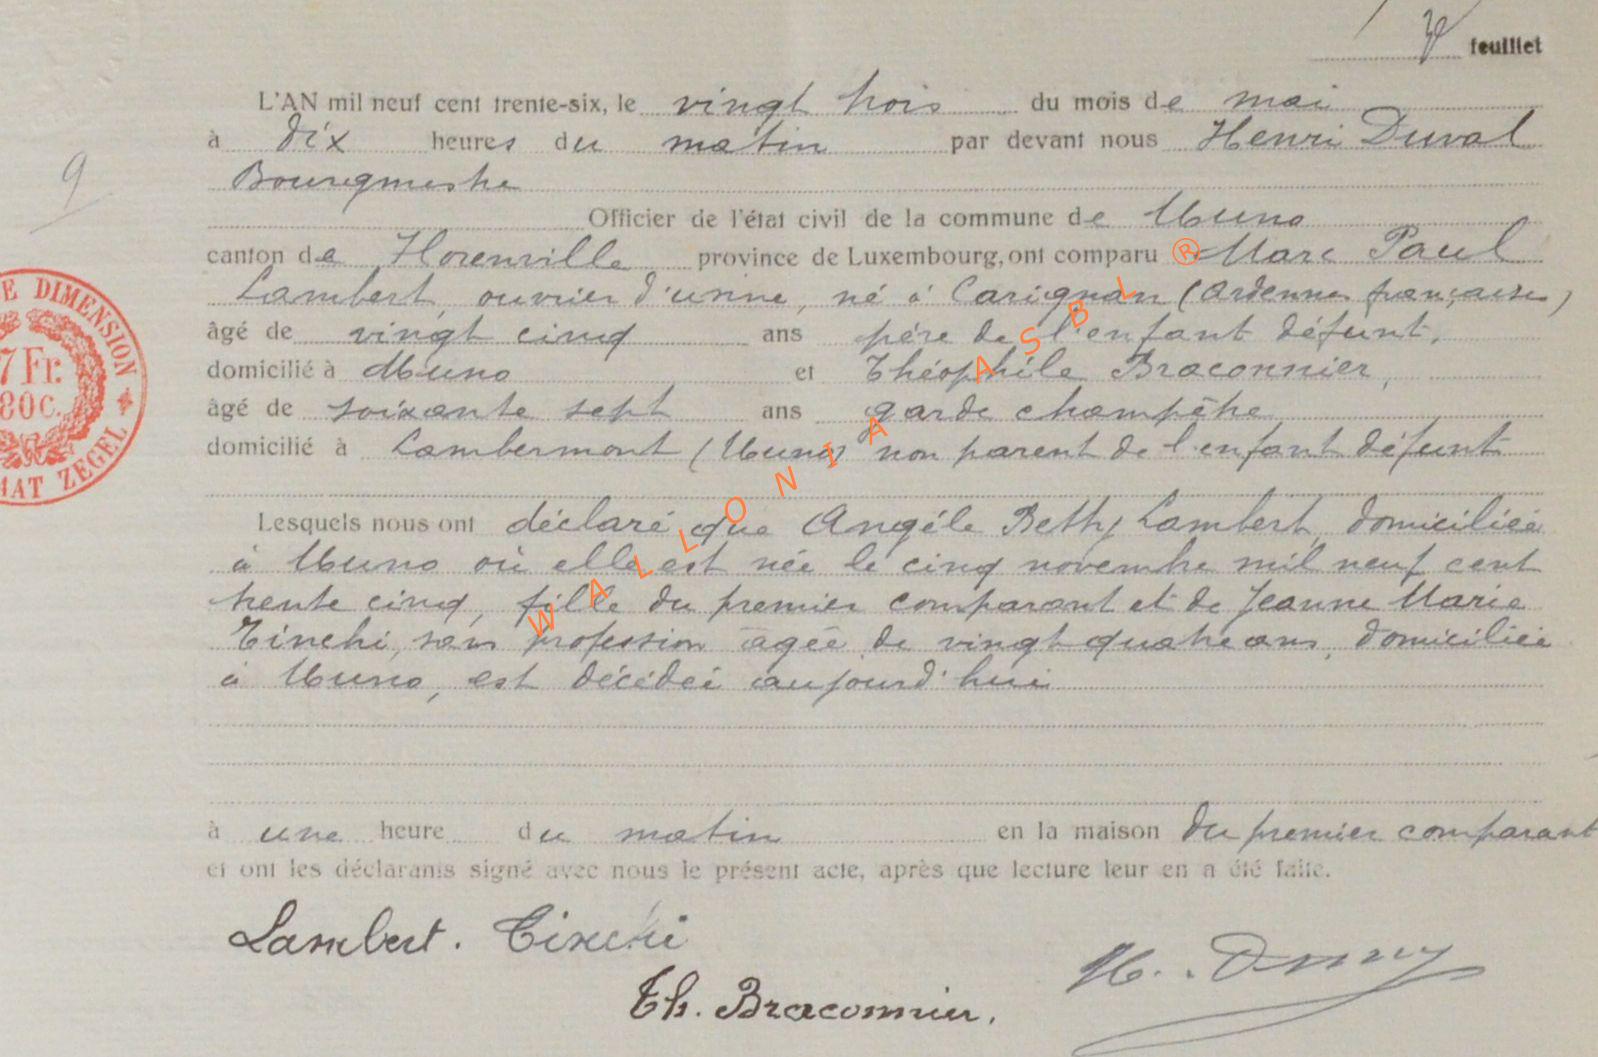 feuillet
L'AN mil neuf cent trente-six, le vingt trois du mois de mai
à dix heures du matin par devant nous Henri Duval
Bourgmestre
Officier de l'état civil de la commune de Muno
canton de Florenville province de Luxembourg, ont comparu ® Marc Paul
Lambert, ouvrier d'usine, né à Carignan (Ardennes françaises)
âgé de vingt cinq ans père de l'enfant défunt,
domicilié à Muno et Théophile Braconnier,
âgé de soixante sept ans garde champêtre
domicilié à Lambermont (Muno) non parent de l'enfant défunt
Lesquels nous ont déclaré que Angéle Betty Lambert, domiciliée
à Muno où elle est née le cinq novembre mil neuf cent
trente cinq, fille du premier comparant et de Jeanne Marie
Tinchi, sans profession âgée de vingt quatre ans, domiciliée
à Muno, est décédée aujourd'hui
à une heure du matin en la maison du premier comparant
et ont les déclarants signé avec nous le présent acte, après que lecture leur en a été faite.
Lambert. Tinchi
Th. Braconnier.
9
E DIMENSION
7 Fr.
80c.
MAT ZEGEL
WALLONIA ASBL